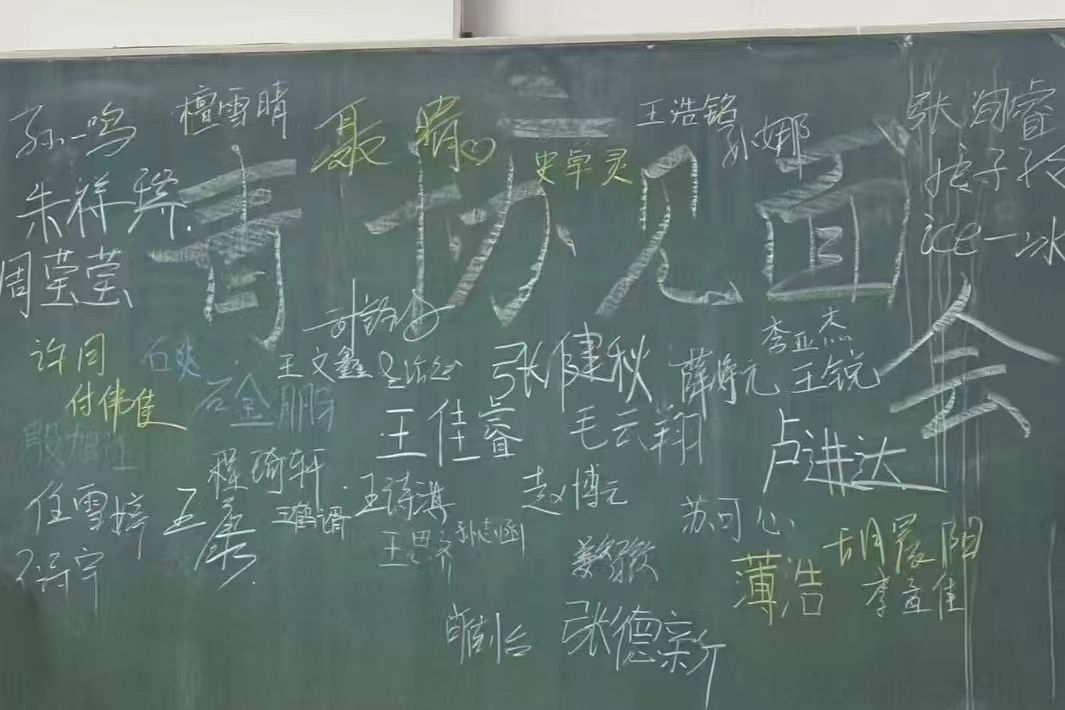 孙一鸣 檀雪晴 聂晴 王浩铭 孙娜 张洵睿
史卓灵
朱祥
周莹莹
青协见面会
ice一冰
许同 石爽 王文鑫 张健秋 薛婷元 李亚杰
王锐
付伟佳 石金鹏
王佳睿 毛云翔 卢进达
殷旭江
程琦轩
任雪婷 王康 王诗淇 赵博元 苏可心
王思齐 孙志涵
胡宸阳
薄浩 李宜佳
张德新